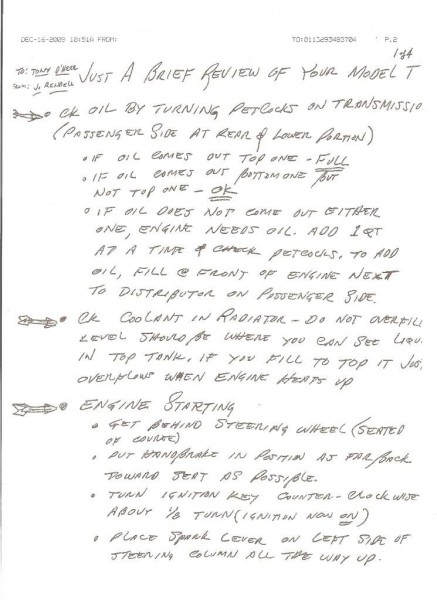 DEC-16-2009 10:51A FROM: TO:0113293483704 P.2
1 of 4
TO: TONY O'NEER
FROM: J. RENDELL
JUST A BRIEF REVIEW OF YOUR MODEL T
CK OIL BY TURNING PETCOCKS ON TRANSMISSIO
(PASSENGER SIDE AT REAR & LOWER PORTION)
• IF OIL COMES OUT TOP ONE - FULL
• IF OIL COMES OUT BOTTOM ONE BUT
NOT TOP ONE - OK
• IF OIL DOES NOT COME OUT EITHER
ONE, ENGINE NEEDS OIL. ADD 1QT
AT A TIME & CHECK PETCOCKS. TO ADD
OIL, FILL @ FRONT OF ENGINE NEXT
TO DISTRIBUTOR ON PASSENGER SIDE.
• CK COOLANT IN RADIATOR - DO NOT OVERFILL
LEVEL SHOULD BE WHERE YOU CAN SEE LIQU
IN TOP TANK. IF YOU FILL TO TOP IT JUS
OVERFLOWS WHEN ENGINE HEATS UP
• ENGINE STARTING
• GET BEHIND STEERING WHEEL (SEATED
OF COURSE)
• PUT HANDBRAKE IN POSITION AS FAR BACK
TOWARD SEAT AS POSSIBLE.
• TURN IGNITION KEY COUNTER-CLOCKWISE
ABOUT 1/8 TURN (IGNITION NOW ON)
• PLACE SPARK LEVER ON LEFT SIDE OF
STEERING COLUMN ALL THE WAY UP.